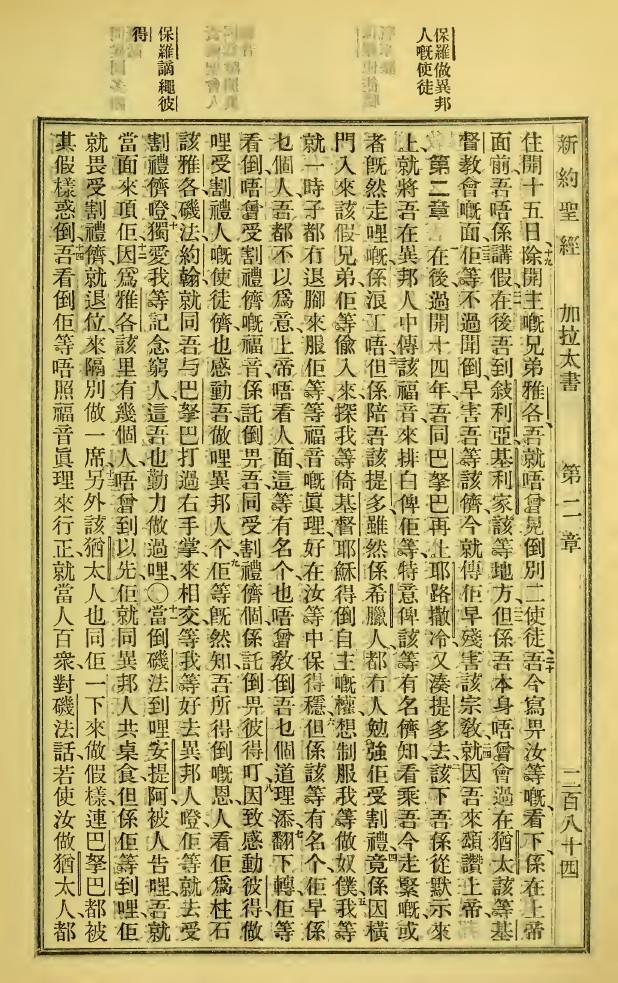 保羅做異邦
人嘅使徒
保羅謫繩彼
得
新約聖經 加拉太書 第二章 二百八十四
住開十五日、十九除開主嘅兄弟雅各、吾就唔曾見倒別二使徒、二十吾今寫畀汝等嘅、看下、係在上帝
面前、吾唔係講假、二一在後吾到敍利亞基利家該等地方、二二但係吾本身唔曾會過在猶太該等基
督教會嘅面、二三佢等不過聞倒、早害吾等該儕、今就傳佢早殘害該宗敎、二四就因吾來頌讚上帝、
第二章 一在後過開十四年、吾同巴拏巴再上耶路撒冷、又湊提多去、二該下吾係從默示來
上、就將吾在異邦人中傳該福音、來排白俾佢等、特意俾該等有名儕知、看乘吾今走緊嘅、或
者旣然走哩嘅、係浪工唔、三但係陪吾該提多、雖然係希臘人、都冇人勉強佢受割禮、四竟係因橫
門入來該假兄弟、佢等偸入來、探我等倚基督耶穌得倒自主嘅權、想制服我等做奴僕、五我等
就一時子都冇退腳來服佢等、等福音嘅眞理、好在汝等中保得穩、六但係該等有名个、佢早係
乜個人、吾都不以爲意、上帝唔看人面、這等有名个也唔曾敎倒吾乜個道理添、七翻下轉、佢等
看倒唔曾受割禮儕嘅福音、係託倒畀吾、同受割禮儕個係託倒畀彼得叮、八因致感動彼得做
哩受割禮人嘅使徒儕、也感動吾做哩異邦人个、九佢等旣然知吾所得倒嘅恩、人看佢爲柱石
該雅各磯法約翰、就同吾与巴拏巴打過右手掌來相交、等我等好去異邦人噔、佢等就去受
割禮儕噔、十獨愛我等記念窮人、這吾也勤力做過哩、〇十一當倒磯法到哩安提阿、被人告哩、吾就
當面來項佢、十二因爲雅各該里有幾個人唔曾到以先、佢就同異邦人共桌食、但係佢等到哩、佢
就畏受割禮儕、就退位來隔別做一席、十三另外該猶太人、也同佢一下來做假樣、連巴拏巴都被
其假樣惑倒、十四吾看倒佢等唔照福音眞理來行正、就當人百衆、對磯法話、若使汝做猶太人、都